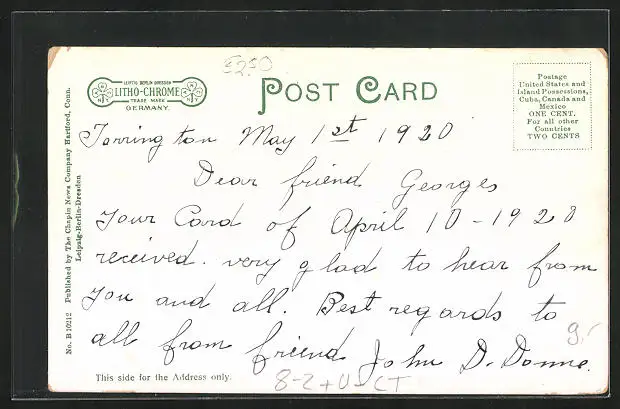 5250
LEIPZIG BERLIN DRESDEN
LITHO-CHROME
TRADE MARK
GERMANY.
POST CARD
Postage
United States and
Island Possessions,
Cuba, Canada and
Mexico
ONE CENT.
For all other
Countries
TWO CENTS
Torrington May 1st 1920
Dear friend Georges
Your Card of April 10-1920
received. very glad to hear from
you and all. Best regards to
all from friend John D. Donne.
9,-
8-2+U-CT
This side for the Address only.
No. B 10212 Published by The Chapin News Company Hartford, Conn.
Leipzig-Berlin-Dresden